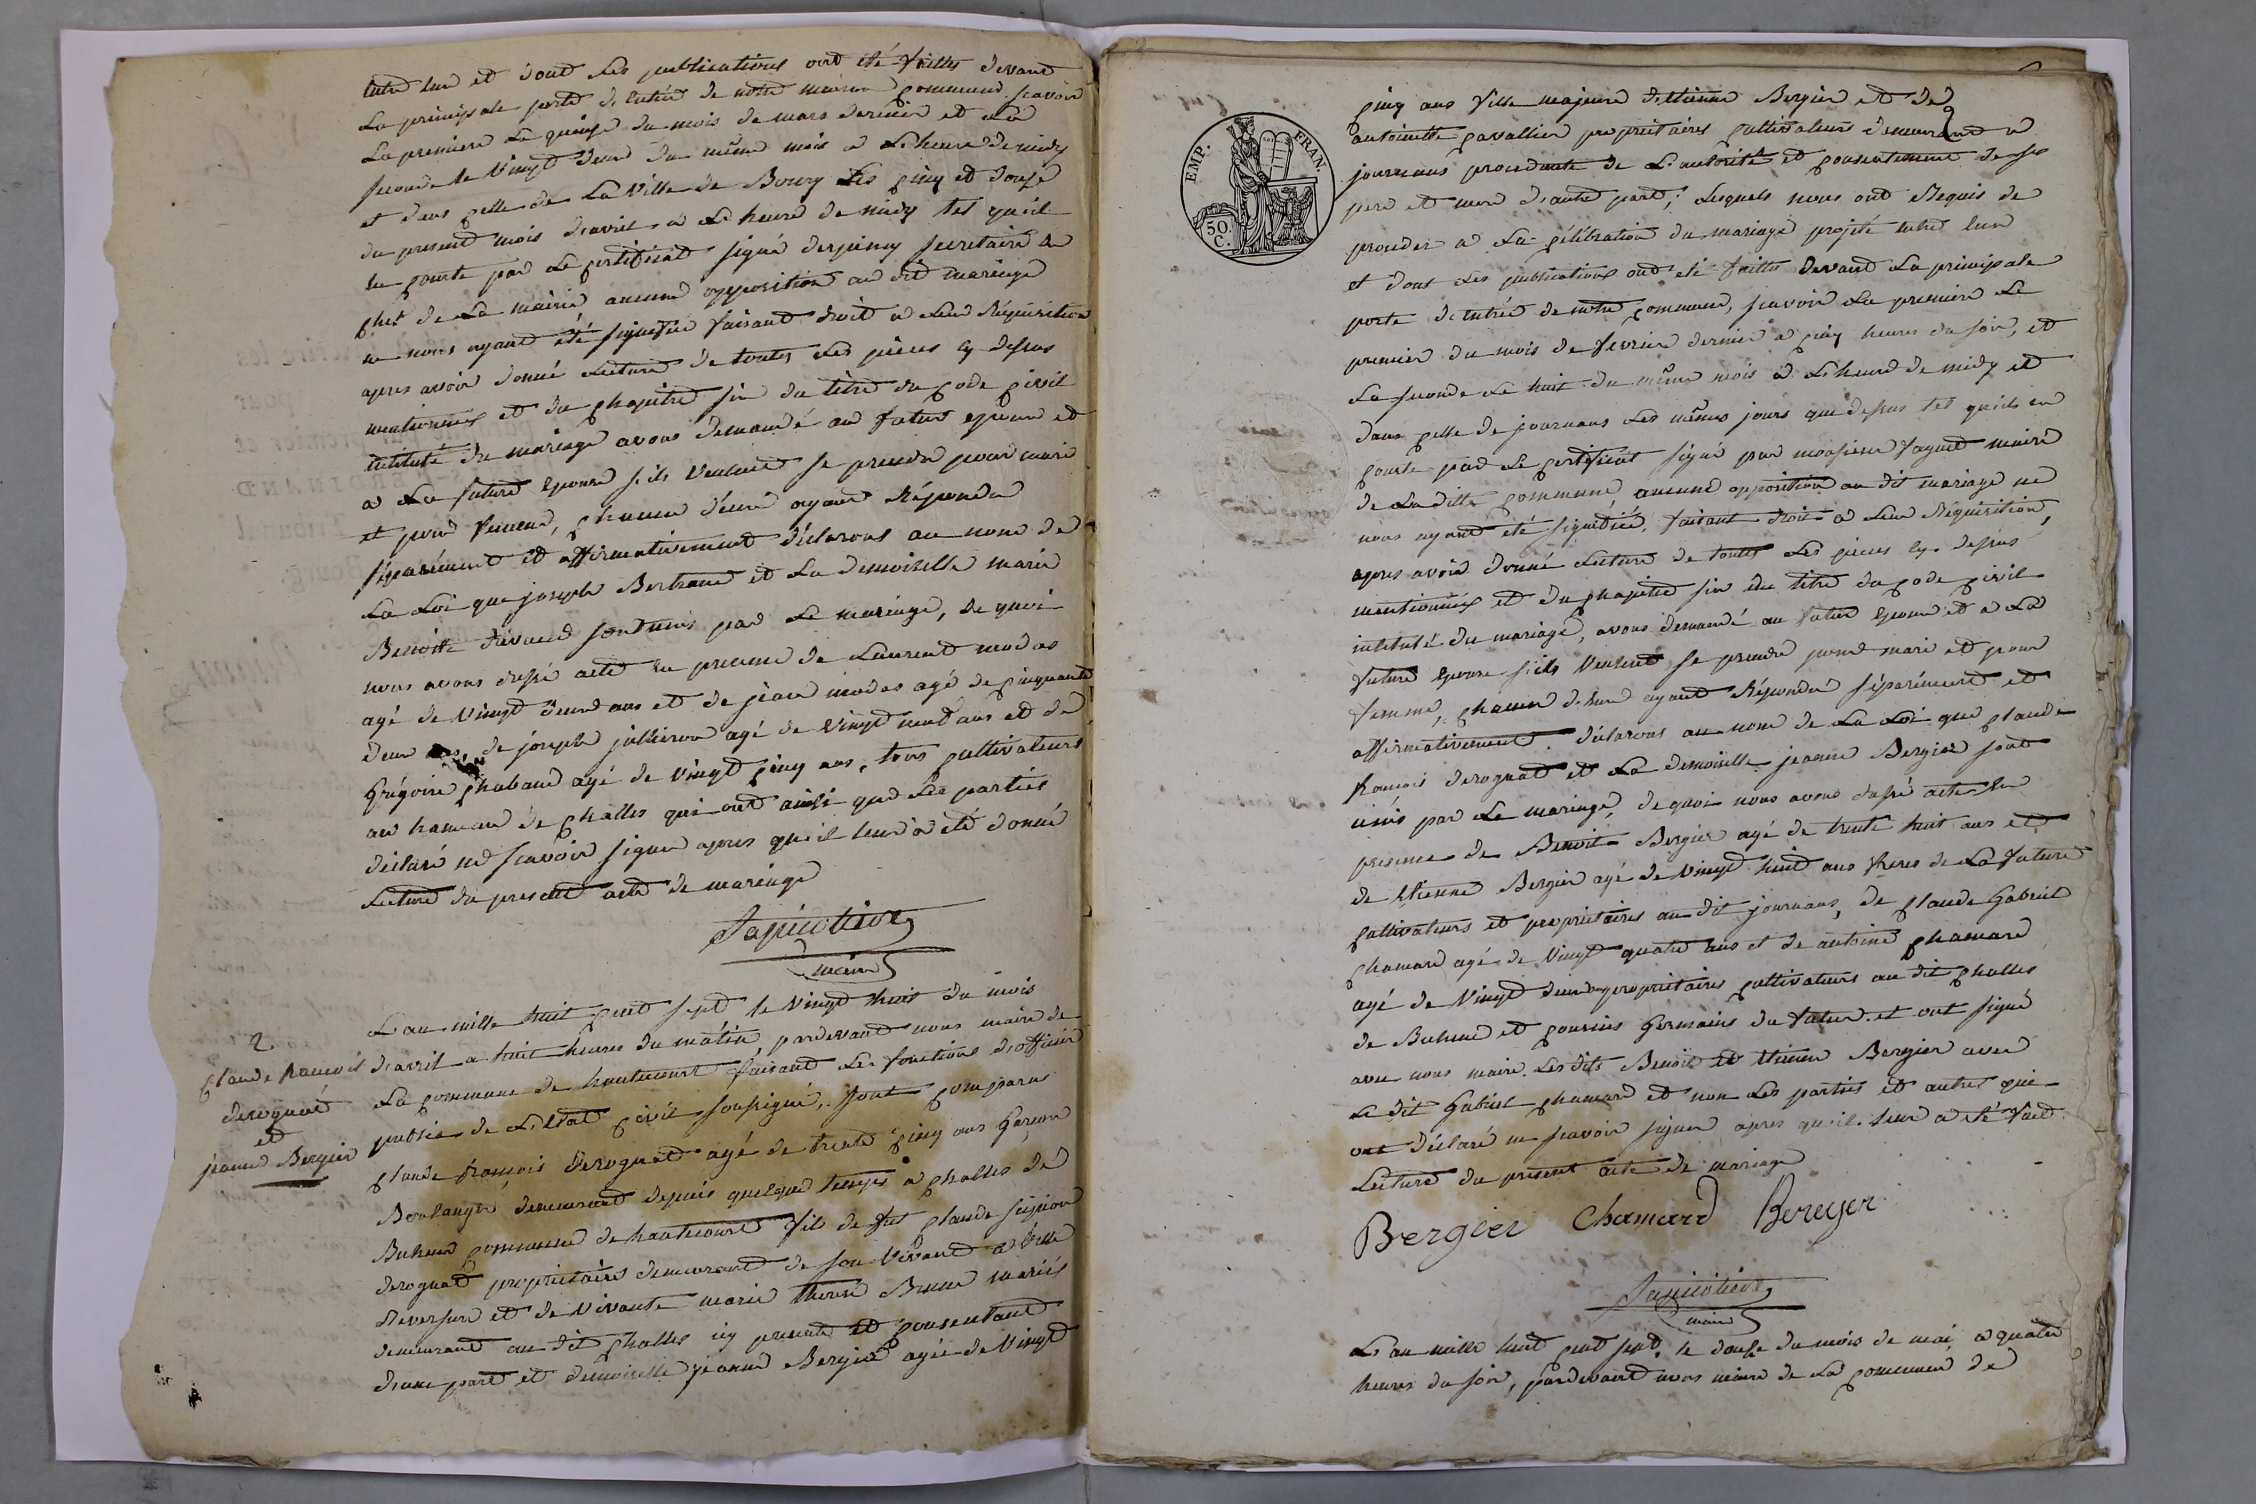 entre eux et dont les publications ont été faittes devant
la principale porte d'entrée de notre maison commune scavoir
la premiere le quinze du mois de mars dernier et la
seconde le vingt deux du même mois a l'heure de midy
et dans celle de la ville de Bourg les cinq et douze
du present mois d'avril a l'heure de midy tel qu'il
en conste par le certificat signé secretaire en
chef de la mairie aucune opposition au dit mariage
ne nous ayant été signifiée faisant droit a leur Réquisition
apres avoir donné lecture de toutes les pièces cy dessus
mentionnées et du chapitre six du titre du code civil
intitulé du mariage avons demandé au futur epoux et
a la future epouse s'ils veulent se prendre pour mari
et pour femme, chacun d'eux ayant Répondu
séparément et affirmativement déclarons au nom de
la loi que joseph Bertrand et la demoiselle marie
Benoitte sont unis par le mariage, de quoi
nous avons dressé acte en presence de Laurent modas
agé de vingt deux ans et de jean modas agé de cinquante
deux ans, de joseph jullieron agé de vingt neuf ans et de
Grégoire chaband agé de vingt cinq ans, tous cultivateurs
au hameau de challes qui ont ainsi que les parties
déclaré ne scavoir signer apres qu'il leur a été donné
lecture du present acte de mariage
maire
2.
claude francois
derognat
et
jeanne Bergier
L'an mille huit cent sept le vingt huit du mois
d'avril a huit heures du matin, pardevant nous maire de
la commune de hautecourt faisant les fonctions d'officier
public de l'état civil soussigné, sont comparus
claude françois derognat agé de trente cinq ans Garcon
Boulanger demeurant depuis quelque temps a challes de
Buhenc commune de hautecourt fils de feu claude scipion
derognat proprietaire demeurant de son vivant a ville
Reversure et de vivante marie therese Brune mariés
demeurant au dit challes icy presente et consentante
d'une part et demoiselle jeanne Bergier agée de vingt
EMP. FRAN.
50
C.
cinq ans fille majeure d'ettienne Bergier et de
antoinette cavallier proprietaires cultivateurs demeurant a
journans procedante de l'autorité et consentement de ses
pere et mere d'autre part; lesquels nous ont Requis de
proceder a la célébration du mariage projeté entre eux
et dont les publications ont été faittes devant la principale
porte d'entrée de notre commune, scavoir la premiere le
premier du mois de fevrier dernier a cinq heures du soir, et
la seconde le huit du même mois a l'heure de midy et
dans celle de journans les mêmes jours que dessus tel qu'il en
conste par le certificat signé par monsieur faguet maire
de la ditte commune, aucune opposition au dit mariage ne
nous ayant été signifiée, faisant droit a leur Réquisition,
apres avoir donné lecture de toutes les pieces cy dessus
mentionnées et du chapitre six du titre du code civil
intitulé du mariage, avons demandé au futur epoux et a la
future epouse s'ils veulent se prendre pour mari et pour
femme, chacun d'eux ayant Répondu séparément et
affirmativement, déclarons au nom de la Loi que claude
francois derognat et la demoiselle jeanne Bergier sont
unis par le mariage, de quoi nous avons dressé acte en
presence de Benoit Bergier agé de trente huit ans et
de etienne Bergier agé de vingt huit ans freres de la future
cultivateurs et proprietaires au dit journans, de claude Gabriel
chamard agé de vingt quatre ans et de antoine chamard
agé de vingt deux proprietaires cultivateurs au dit challes
de Buhenc et cousins Germains du futur et ont signé
avec nous maire. Les dits Benoit et etienne Bergier avec
le dit Gabriel chamard et non les parties et autres qui
ont déclaré ne scavoir signer apres qu'il leur a été fait
lecture du present acte de mariage
Bergier Chamard Bergier
maire
L'an mille huit cent sept, le douze du mois de mai, a quatre
heures du soir, pardevant nous maire de la commune de